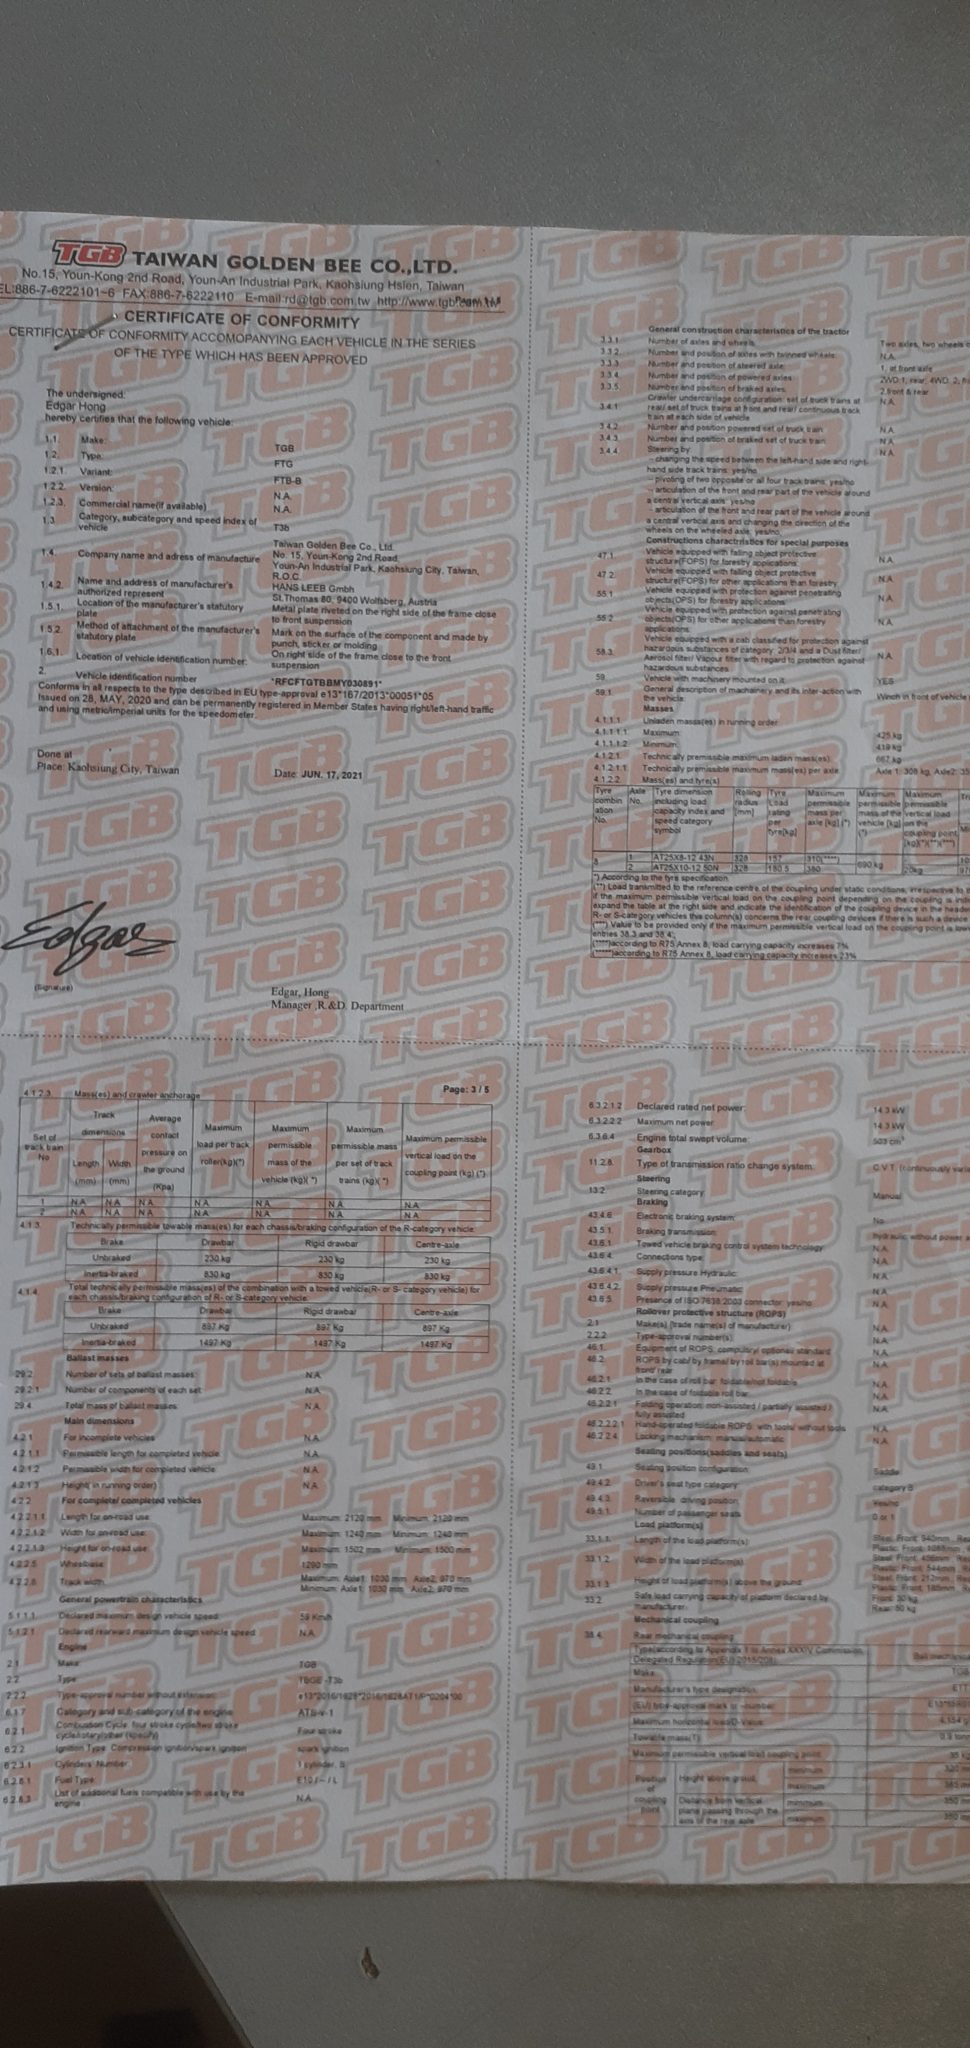 TGB TAIWAN GOLDEN BEE CO.,LTD.
No.15, Youn-Kong 2nd Road, Youn-An Industrial Park, Kaohsiung Hsien, Taiwan
EL:886-7-6222101~6 FAX:886-7-6222110 E-mail:rd@tgb.com.tw http://www.tgb.com.tw
CERTIFICATE OF CONFORMITY
CERTIFICATE OF CONFORMITY ACCOMOPANYING EACH VEHICLE IN THE SERIES
OF THE TYPE WHICH HAS BEEN APPROVED
The undersigned:
Edgar Hong
hereby certifies that the following vehicle:
1.1. Make: TGB
1.2. Type: FTG
1.2.1. Variant: FTB-B
1.2.2. Version: N.A.
1.2.3. Commercial name(if available) N.A.
1.3 Category, subcategory and speed index of vehicle T3b
1.4. Company name and adress of manufacture Taiwan Golden Bee Co., Ltd.
No. 15, Youn-Kong 2nd Road,
Youn-An Industrial Park, Kaohsiung City, Taiwan,
R.O.C.
1.4.2. Name and address of manufacturer's authorized represent HANS LEEB Gmbh
St.Thomas 80, 9400 Wolfsberg, Austria
1.5.1. Location of the manufacturer's statutory plate Metal plate riveted on the right side of the frame close to front suspension
1.5.2. Method of attachment of the manufacturer's statutory plate Mark on the surface of the component and made by punch, sticker or molding
1.6.1. Location of vehicle identification number: On right side of the frame close to the front suspension
2. Vehicle identification number *RFCFTGTBBMY030891*
Conforms in all respects to the type described in EU type-approval e13*167/2013*00051*05
Issued on 28, MAY, 2020 and can be permanently registered in Member States having right/left-hand traffic
and using metric/imperial units for the speedometer.
Done at
Place: Kaohsiung City, Taiwan Date: JUN. 17, 2021
Edgar
(Signature)
Edgar, Hong
Manager ,R.&D. Department
General construction characteristics of the tractor
3.3.1 Number of axles and wheels: Two axles, two wheels
3.3.2. Number and position of axles with twinned wheels: N.A.
3.3.3 Number and position of steered axle: 1, at front axle
3.3.4 Number and position of powered axles: 2WD:1, rear; 4WD: 2,
3.3.5. Number and position of braked axles: 2 front & rear
3.4.1 Crawler undercarriage configuration: set of truck trains at rear/ set of truck trains at front and rear/ continuous track train at each side of vehicle N.A.
3.4.2 Number and position powered set of truck train: N.A.
3.4.3. Number and position of braked set of truck train N.A.
3.4.4 Steering by: N.A.
– changing the speed between the left-hand side and right-
hand side track trains: yes/no
– pivoting of two opposite or all four track trains: yes/no
– articulation of the front and rear part of the vehicle around
a central vertical axis: yes/no
– articulation of the front and rear part of the vehicle around
a central vertical axis and changing the direction of the
wheels on the wheeled axle: yes/no
Constructions charactristics for special purposes
47.1 Vehicle equipped with falling object protective structure(FOPS) for forestry applications: N.A.
47.2. Vehicle equipped with falling object protective structure(FOPS) for other applications than forestry N.A.
55.1 Vehicle equipped with protection against penetrating objects(OPS) for forestry applications: N.A.
55.2 Vehicle equipped with protection against penetrating objects(OPS) for other applications than forestry applications: N.A.
58.3. Vehicle equipped with a cab classified for protection against hazardous substances of category: 2/3/4 and a Dust filter/ Aerosol filter/ Vapour filter with regard to protection against hazardous substances N.A.
59. Vehicle with machinery mounted on it: YES
59.1 General description of machainery and its inter-action with the vehicle: Winch in front of vehicle
Masses
4.1.1.1. Unladen masss(es) in running order:
4.1.1.1.1. Maximum: 425 kg
4.1.1.1.2 Minimum: 419 kg
4.1.2.1 Technically premissible maximum laden mass(es): 667 kg
4.1.2.1.1 Technically premissible maximum mass(es) per axle: Axle 1: 308 kg, Axle2:
4.1.2.2. Mass(es) and tyre(s)
Tyre combination No. Axle No. Tyre dimension including load capacity index and speed category symbol Rolling radius [mm] Tyre Load rating per tyre[kg] Maximum permissible mass per axle [kg] (*) Maximum permissible mass of the vehicle [kg] (*) Maximum permissible vertical load on the coupling point [kg](*)(**)(***)
8 1 AT25X8-12 43N 328 157 310(****) 690 kg
2 AT25X10-12 50N 328 180.5 380 20kg
*) According to the tyre specification.
(**) Load tranimitted to the reference centre of the coupling under static conditions, irrespective
if the maximum permissible vertical load on the coupling point depending on the coupling is
expand the table at the right side and indicate the identification of the coupling device in the
R- or S-category vehicles this column(s) concerns the rear coupling devices if there is such a device
(***) Value to be provided only if the maximum permissible vertical load on the coupling point is
entries 38.3 and 38.4;
(****)according to R75 Annex 8, load carrying capacity increases 7%
(*****)according to R75 Annex 8, load carrying capacity increases 23%
Page: 3 / 5
4.1.2.3. Mass(es) and crawler anchorage
Set of track train No Track dimensions Length (mm) Width (mm) Average contact pressure on the ground (Kpa) Maximum load per track roller(kg)(*) Maximum permissible mass of the vehicle (kg)( *) Maximum permissible mass per set of track trains (kg)( *) Maximum permissible vertical load on the coupling point (kg) (*)
1 N.A N.A N.A N.A N.A N.A N.A
2 N.A N.A N.A N.A N.A N.A N.A
4.1.3. Technically permissible towable mass(es) for each chassis/braking configuration of the R-category vehicle
Brake Drawbar Rigid drawbar Centre-axle
Unbraked 230 kg 230 kg 230 kg
Inertia-braked 830 kg 830 kg 830 kg
4.1.4. Total technically permissible mass(es) of the combination with a towed vehicle(R- or S- category vehicle) for
each chassis/braking configuration of R- or S-category vehicle
Brake Drawbar Rigid drawbar Centre-axle
Unbraked 897 Kg 897 Kg 897 Kg
Inertia-braked 1497 Kg 1497 Kg 1497 Kg
Ballast masses
29.2 Number of sets of ballast masses: N.A.
29.2.1 Number of components of each set N.A.
29.4. Total mass of ballast masses: N.A.
Main dimensions
4.2.1 For incomplete vehicles N.A.
4.2.1.1 Permissible length for completed vehicle: N.A.
4.2.1.2 Permissible width for completed vehicle N.A.
4.2.1.3 Height( in running order) N.A.
4.2.2 For complete/ completed vehicles
4.2.2.1.1 Length for on-road use: Maximum: 2120 mm Minimum: 2120 mm
4.2.2.1.2 Width for on-road use: Maximum: 1240 mm Minimum: 1240 mm
4.2.2.1.3 Height for on-road use: Maximum: 1502 mm Minimum: 1500 mm
4.2.2.5 Wheelbase: 1290 mm
4.2.2.6 Track width: Maximum: Axle1: 1030 mm Axle2: 970 mm
Minimum: Axle1: 1030 mm Axle2: 970 mm
General powertrain characteristics
5.1.1.1. Declared maximum design vehicle speed: 59 Km/h
5.1.2.1 Declared rearward maximum design vehicle speed N.A.
Engine
2.1 Make: TGB
2.2 Type: TBGE -T3b
2.2.2. Type-approval number without extension:
6.1.7 Category and sub-category of the engine
6.2.1 Combustion Cycle: four stroke cycle/two stroke cycle/rotary/other (specify) Four stroke
6.2.2 Ignition Type: Compression ignition/spark ignition spark ignition
6.2.3.1 Cylinders' Number: 1 cylinder,
6.2.8.1 Fuel Type: E10
6.2.8.3 List of additional fuels compatible with use by the engine N.A.
6.3.2.1.2 Declared rated net power: 14.3 kW
6.3.2.2.2 Maximum net power 14.3 kW
6.3.6.4 Engine total swept volume: 503 cm³
Gearbox
11.2.8. Type of transmission ratio change system: C.V.T. (continuously
Steering
13.2 Steering category: Manual
Braking
43.4.6 Electronic braking system: No
43.5.1. Braking transmission: hydraulic without power
43.6.1. Towed vehicle braking control system technology N.A.
43.6.4. Connections type: N.A.
43.6.4.1. Supply pressure Hydraulic: N.A.
43.6.4.2. Supply pressure Pneumatic: N.A.
43.6.5. Presence of ISO 7638:2003 connector: yes/no N.A.
Rollover protective structure (ROPS)
2.1 Make(s) (trade name(s) of manufacturer): N.A.
2.2.2 Type-approval number(s): N.A.
46.1. Equipment of ROPS: compulsry/ optional/ standard N.A.
46.2. ROPS by cab/ by frame/ by roll bar(s) mounted at front/ rear N.A.
46.2.1 In the case of roll bar: foldable/not foldable N.A.
46.2.2 In the case of foldable roll bar: N.A.
46.2.2.1 Folding operation: non-assisted / partially assisted / fully assisted N.A.
46.2.2.2.1 Hand-operated foldable ROPS: with tools/ without tools N.A.
46.2.2.4. Locking mechanism: manual/automatic N.A.
Seating positions(saddles and seats)
49.1 Seating position configuration: Saddle
49.4.2. Driver's seat type category: category B
49.4.3. Reversible driving position: Yes/no
49.5.1. Number of passenger seats: 0 or 1
Load platform(s)
33.1.1. Length of the load platform(s): Steel: Front: 940mm,
33.1.2 Width of the load platform(s):
33.1.3 Height of load platform(s) above the ground:
33.2 Safe load carrying capacity of platform declared by manufacturer: Front: 30 kg
Rear: 50 kg
Mechanical coupling
38.4. Rear mechanical coupling
Type(according to Appendix 1 to Annex XXXIV Commission Delegated Regulation(EU) 2015/208):
Make
Manufacturer's type designation:
(EU) type-approval mark or -number:
Maximum horizontal load/D-Value:
Towable mass(T):
Maximum permissible vertical load coupling point:
Position of coupling point Height above ground: minimum
maximum
Distance from vertical plane passing through the axis of the rear axle minimum
maximum